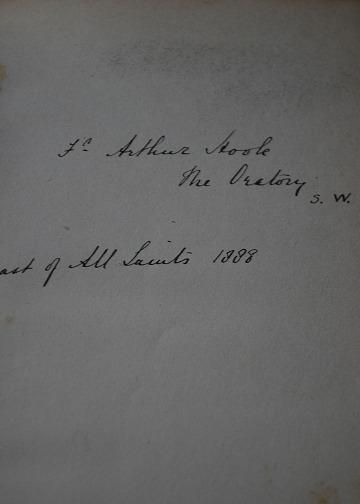 Fr Arthur Hoole
The Oratory
S. W.
ast of All Saints 1888